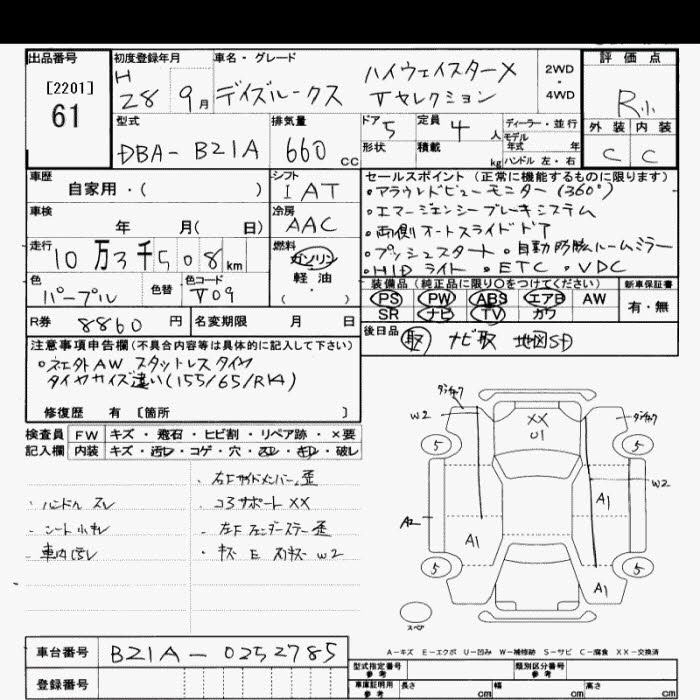 出品番号
[2201]
61
初度登録年月
H 28 9月
車名・グレード
デイズルークス ハイウェイスターX
Vセレクション
2WD
4WD
評価点
R小
外装 内装
C C
型式
DBA-B21A
排気量
660 cc
ドア 5
形状
定員 4 人
積載 kg
ディーラー・並行
モデル年式 年
ハンドル 左・右
車歴
自家用・( )
シフト
IAT
車検
年 月( 日)
冷房
AAC
走行
10万3千508km
燃料
ガソリン
軽油
( )
色
パープル
色替
色コード
V09
R券 8860 円
名変期限 月 日
セールスポイント (正常に機能するものに限ります)
・アラウンドビューモニター(360°)
・エマージェンシーブレーキシステム
・両側オートスライドドア
・プッシュスタート ・自動防眩ルームミラー
・HIDライト ・ETC ・VDC
装備品 (純正品に限り○をつけてください)
新車保証書
PS PW ABS エアB AW
SR ナビ TV カワ
有・無
後日品
取 ナビ取 地図SD
注意事項申告欄(不具合内容等は具体的に記入して下さい)
・社外AW スタットレスタイヤ
タイヤサイズ違い(155/65/R14)
修復歴 有 〔箇所 〕
検査員記入欄
FW キズ・飛石・ヒビ割・リペア跡・×要
内装 キズ・汚レ・コゲ・穴・スレ・キレ・破レ
・ハンドル スレ
・シート小キレ
・車内汚レ
・右Fサイドメンバー歪
・コアサポート XX
・左Fフェンダーステー歪
・キズ E スリキズ W2
W2
XX
U1
5
5
W2
A1
A2
A1
5
5
A1
スペア
A-キズ E-エクボ U-凹み W-補修跡 S-サビ C-腐食 XX-交換済
車台番号
B21A-0252785
登録番号
型式指定番号
参考
類別区分番号
参考
車庫証明用
参考
長さ cm
幅 cm
高さ cm